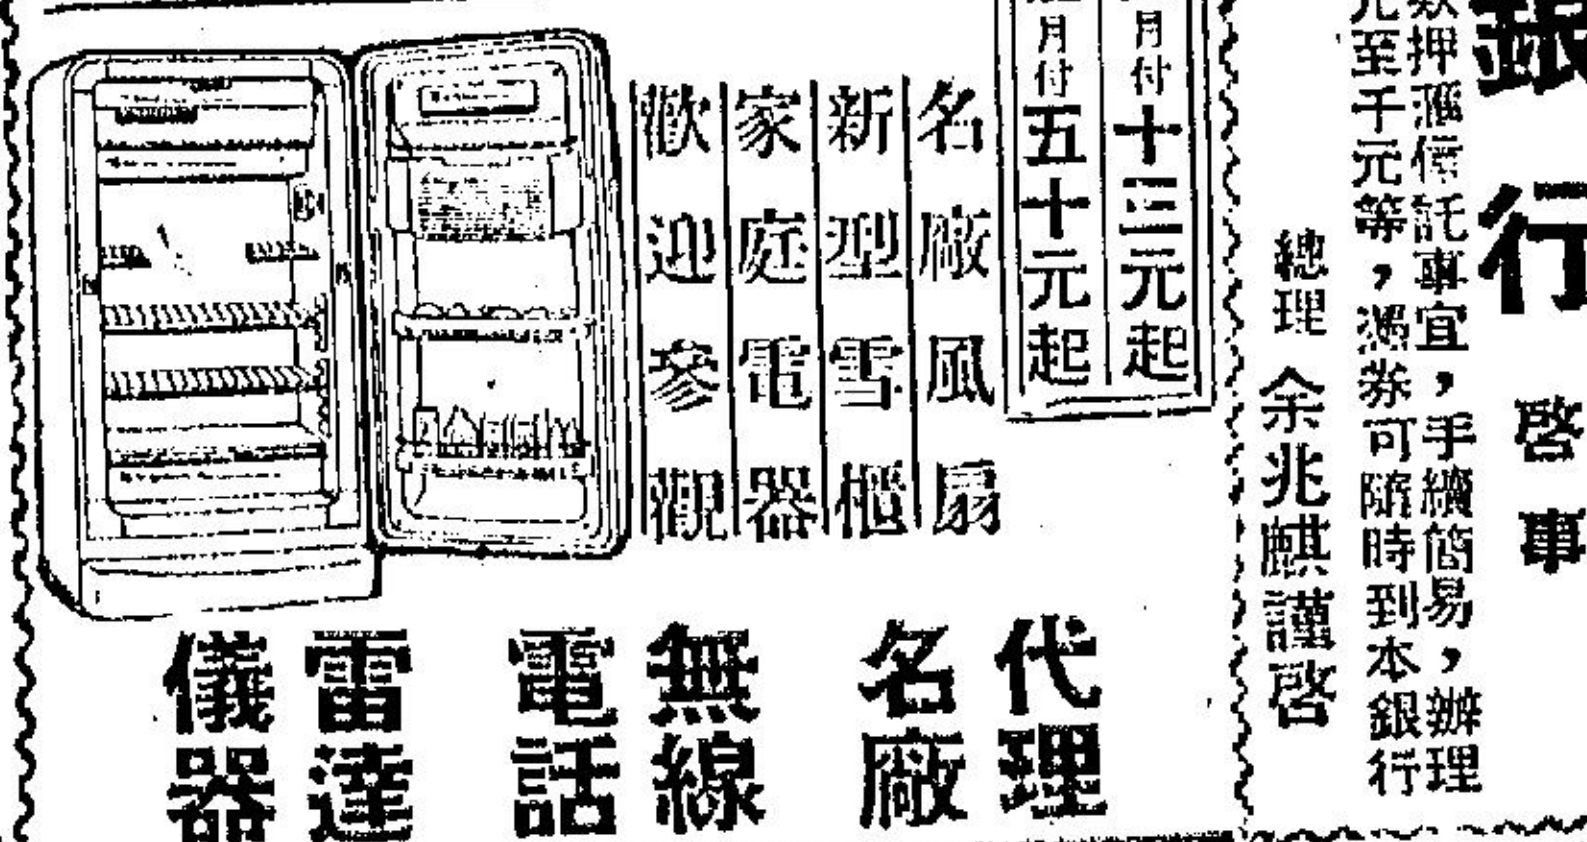 銀行啓事
款押滙信託事宜，手續簡易，辦理
元至千元等，憑券可隨時到本銀行
總理 余兆麒謹啓
月付十三元起
月付五十元起
名廠風扇
新型雪櫃
家庭電器
歡迎參觀
代理
名廠
無線
電話
雷達
儀器